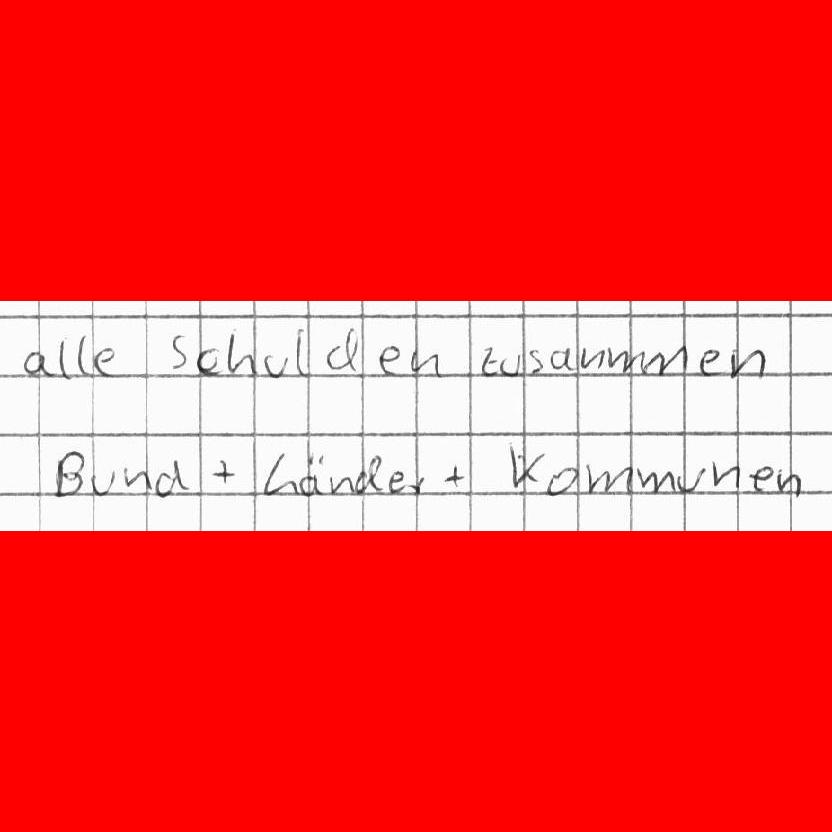 alle Schulden zusammen
Bund + Länder + Kommunen